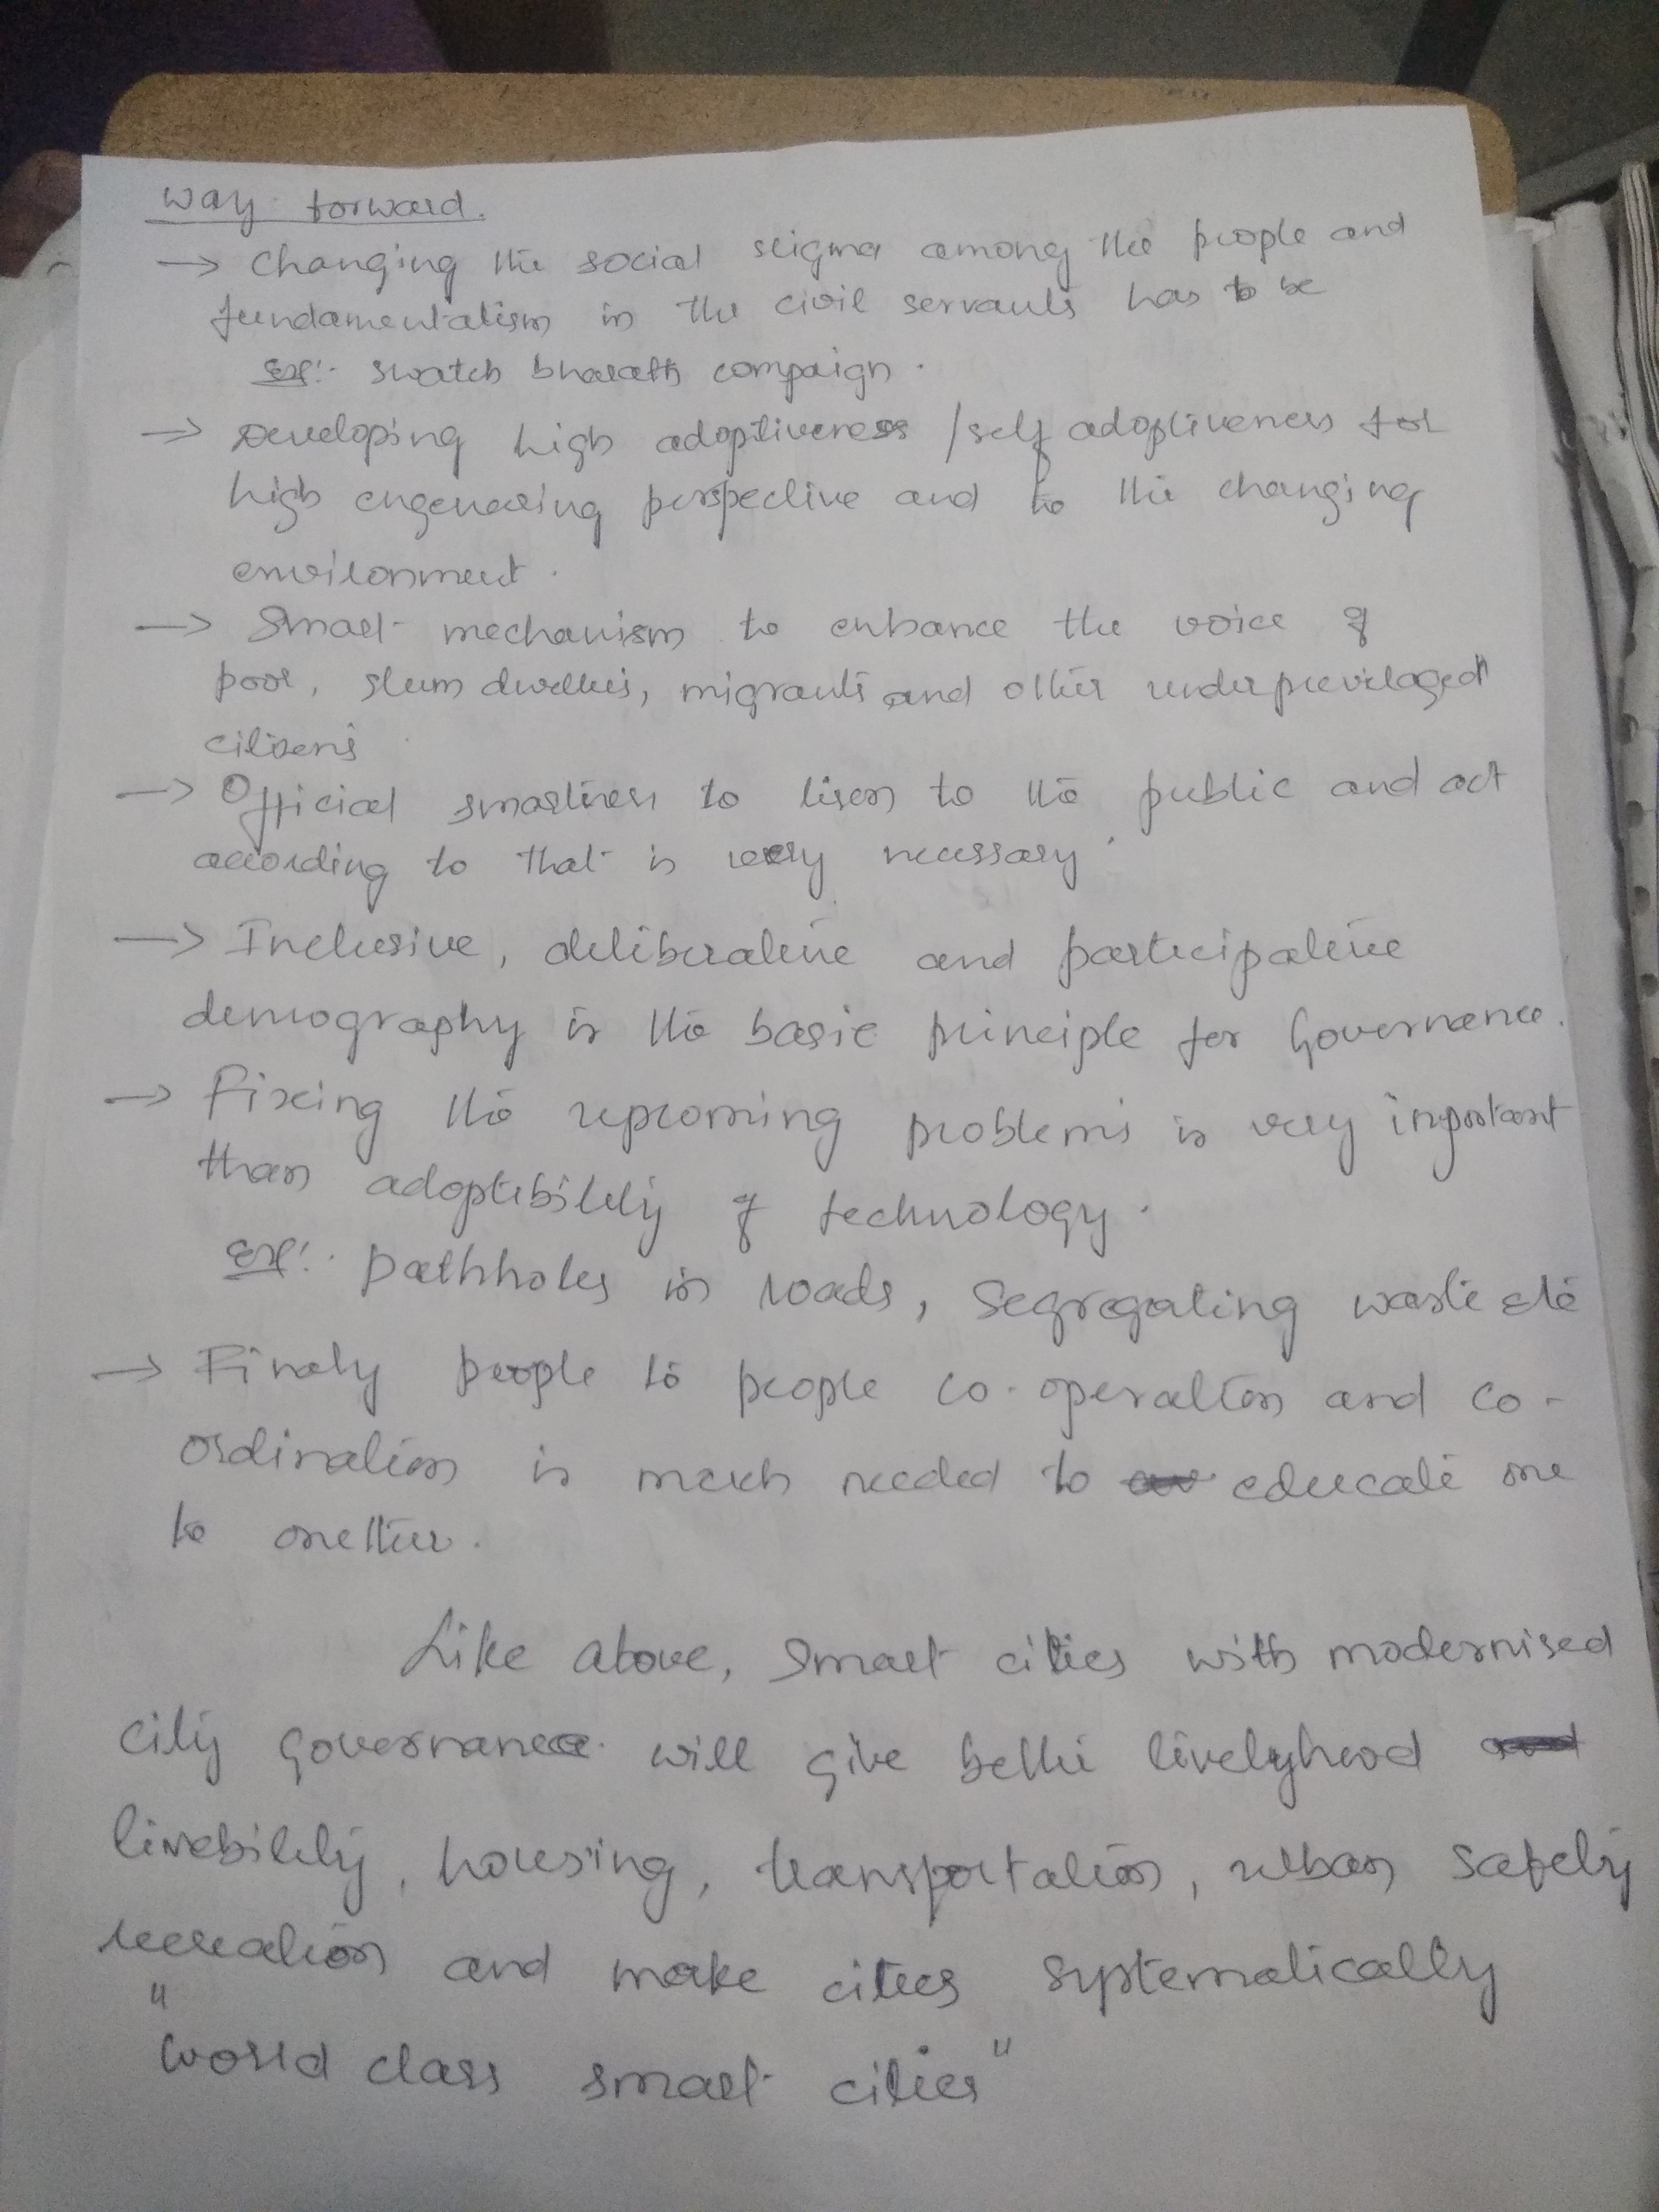 way forward.
→ Changing the social stigma among the people and
fundamentalism in the civil servants has to be
Ex:- swatch bharath campaign.
→ Developing high adoptiveness /self adoptiveness for
high engeneering perspective and to the changing
environment.
→ Smart mechanism to enhance the voice of
poor, slum dwellers, migrants and other underprevilaged
citizens
→ Official smartness to lisen to the public and act
according to that is very necessary.
→ Inclusive, deliberative and participative
demography is the basic principle for Governance.
→ Fixing the upcoming problems is very important
than adoptibility of technology.
Ex:- pathholes in roads, Segregating waste etc
→ Finaly people to people co-operation and co-
ordination is much needed to educate one
to onether.
Like above, Smart cities with modernised
city governance will give better livelyhood
livebility, housing, transportation, urban safety
recreation and make cities systematically
"world class smart cities"